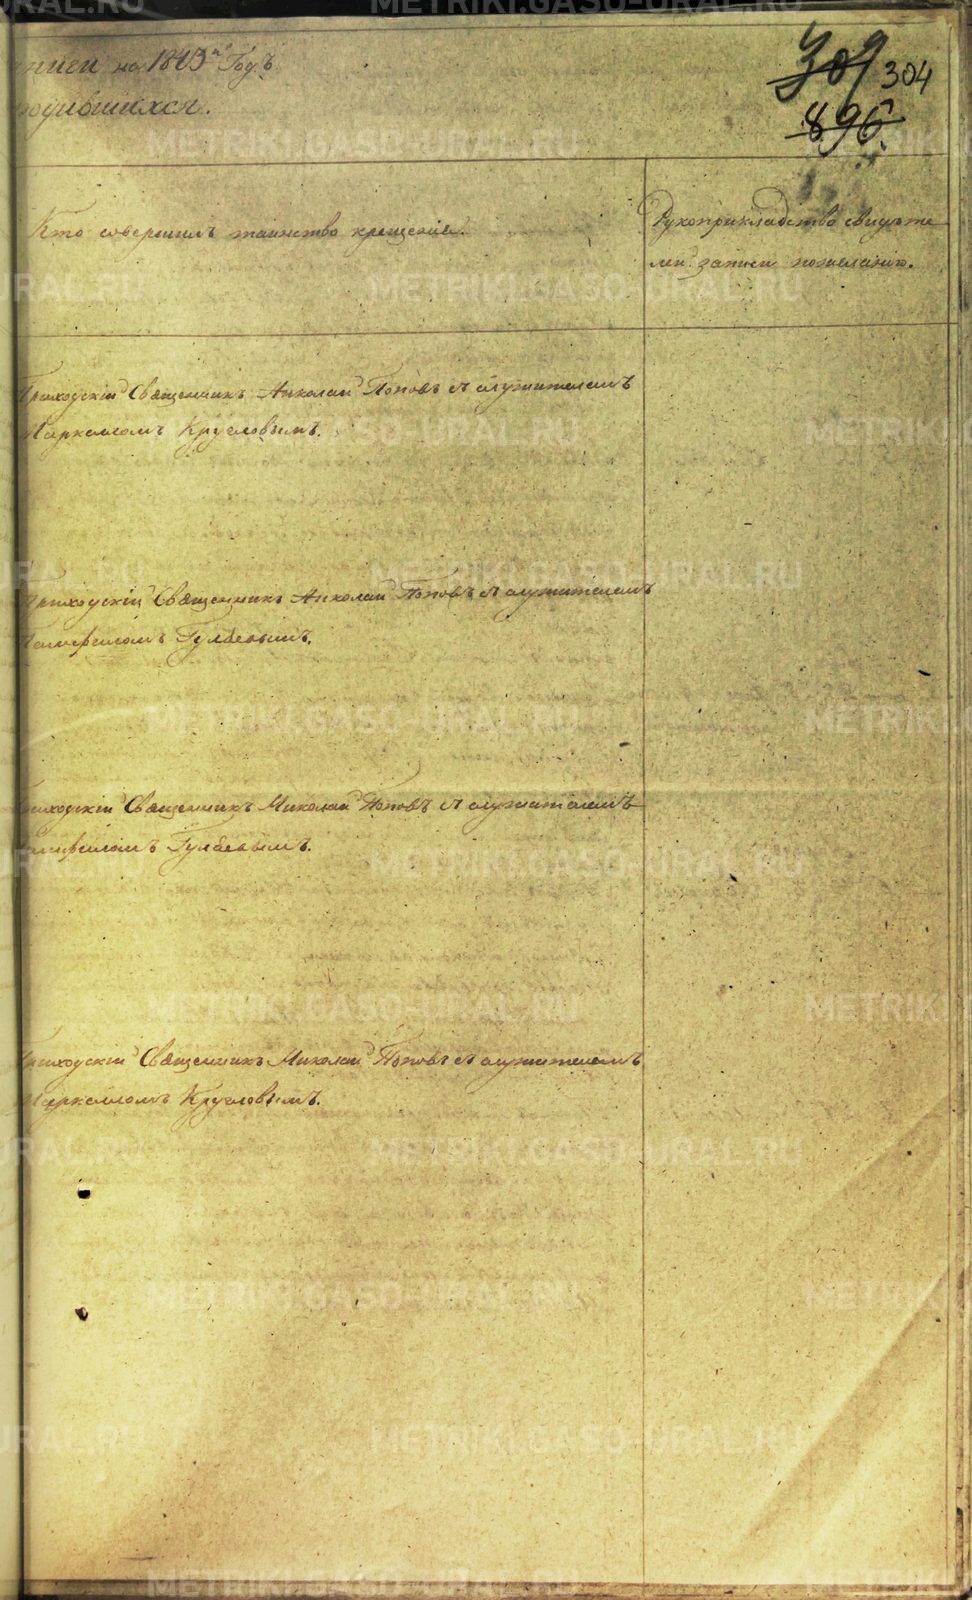 на 1843го Годъ
309 304
896.
родившихся.
Кто совершилъ таинство крещенія.
Рукоприкладство свидѣте
лей записи пожеланію.
Приходскій Священникъ Николай Поповъ съ служителемъ
Маркелломъ Кругловымъ.
Приходскій Священникъ Николай Поповъ съ служителемъ
Памфиломъ Гулбевымъ.
Приходскій Священникъ Николай Поповъ съ служителемъ
Памфиломъ Гулбевымъ.
Приходскій Священникъ Николай Поповъ съ служителемъ
Маркелломъ Кругловымъ.
METRIKI.GASO-URAL.RU